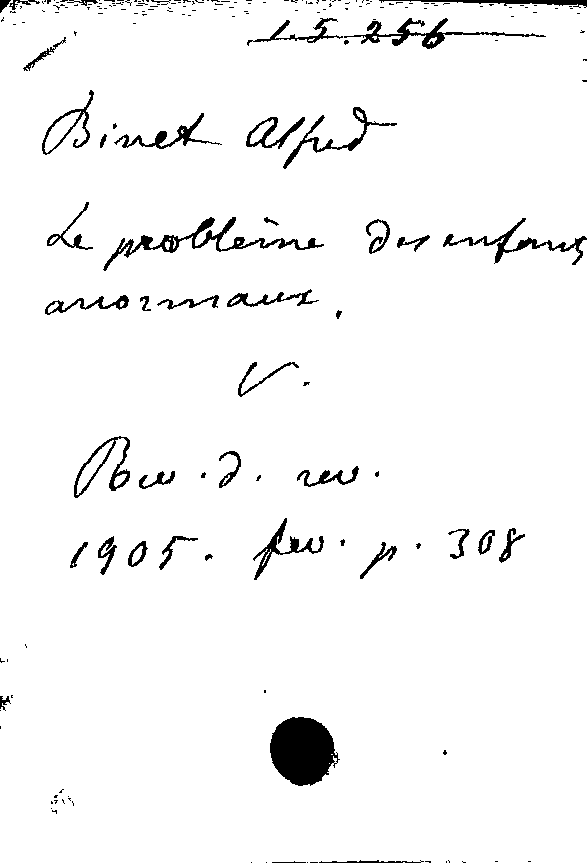 1.5.256
Binet Alfred
Le problème des enfants
anormaux.
V.
Rev. d. rev.
1905. fev. p. 308